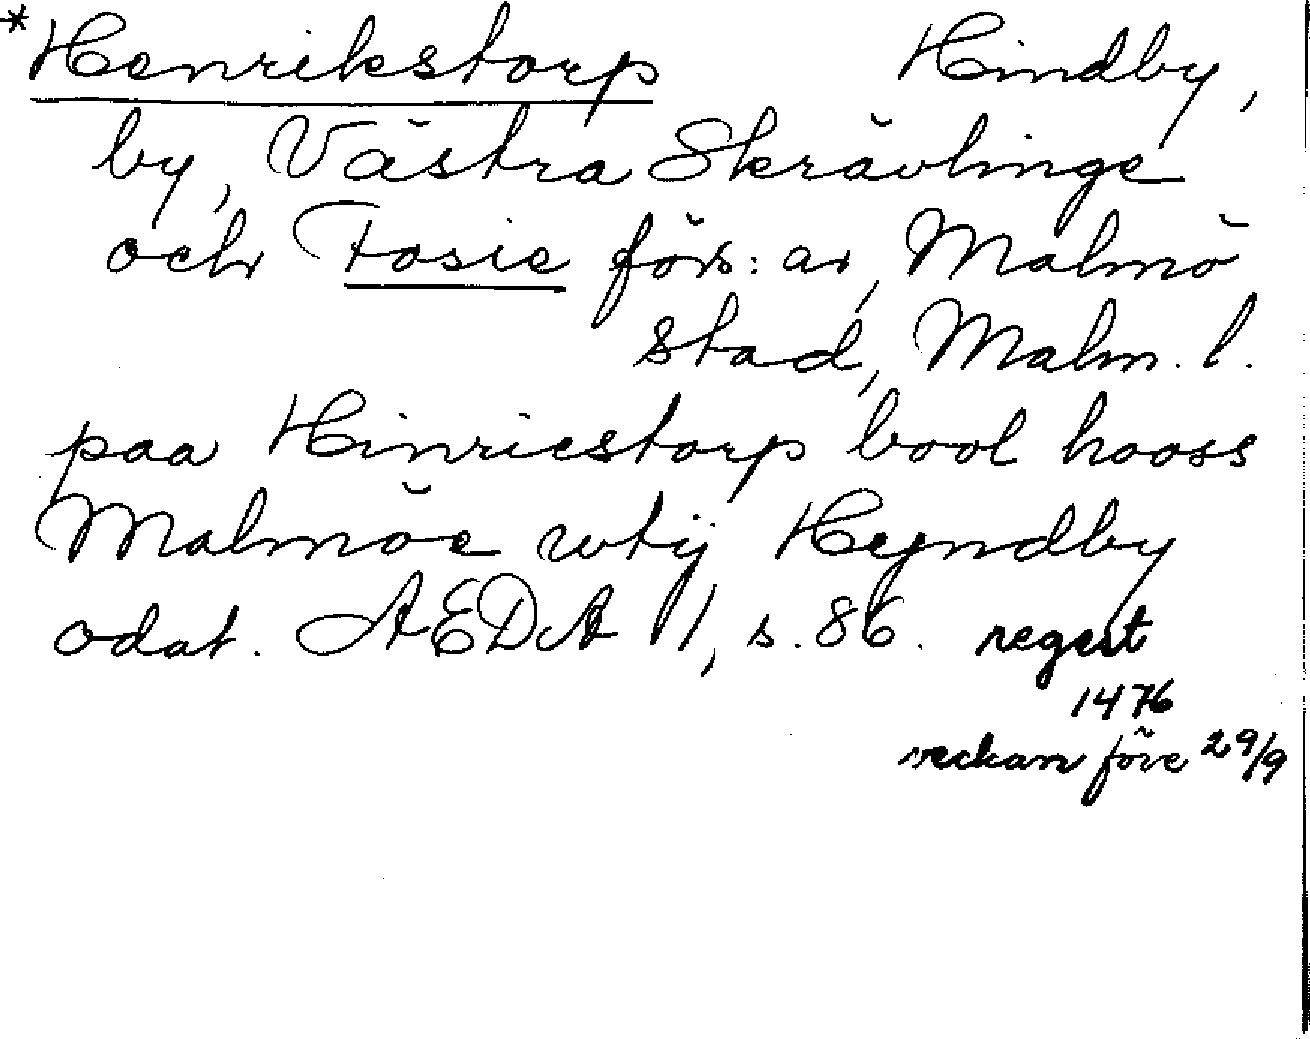 *Henrikstorp Hindby,
by, Västra Skrävlinge
och Fosie förs:ar, Malmö
stad, Malm. l.
paa Hinricstorp bool hooss
Malmöe wtij Hyndby
odat. ÆDA 1, s. 86. regest
1476
veckan före 29/9